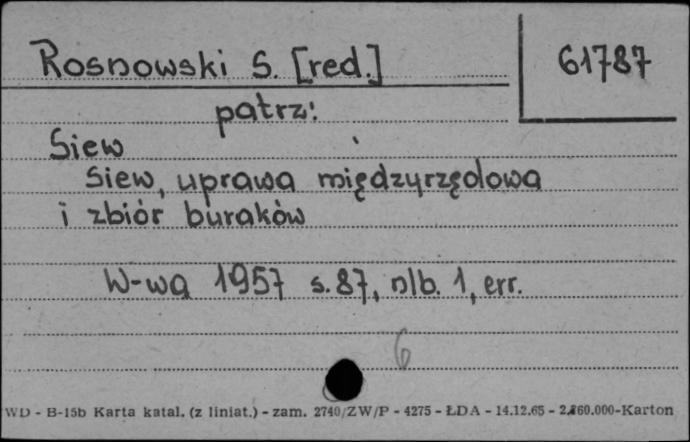 Rosnowski S. [red.]
61787
patrz:
Siew
Siew, uprawa międzyrzędowa
i zbiór buraków
W-wa 1957 s. 87, nlb. 1, err.
6
WD - B-15b Karta katal. (z liniat.) - zam. 2740/ZW/P - 4275 - ŁDA - 14.12.65 - 2.260.000-Karton